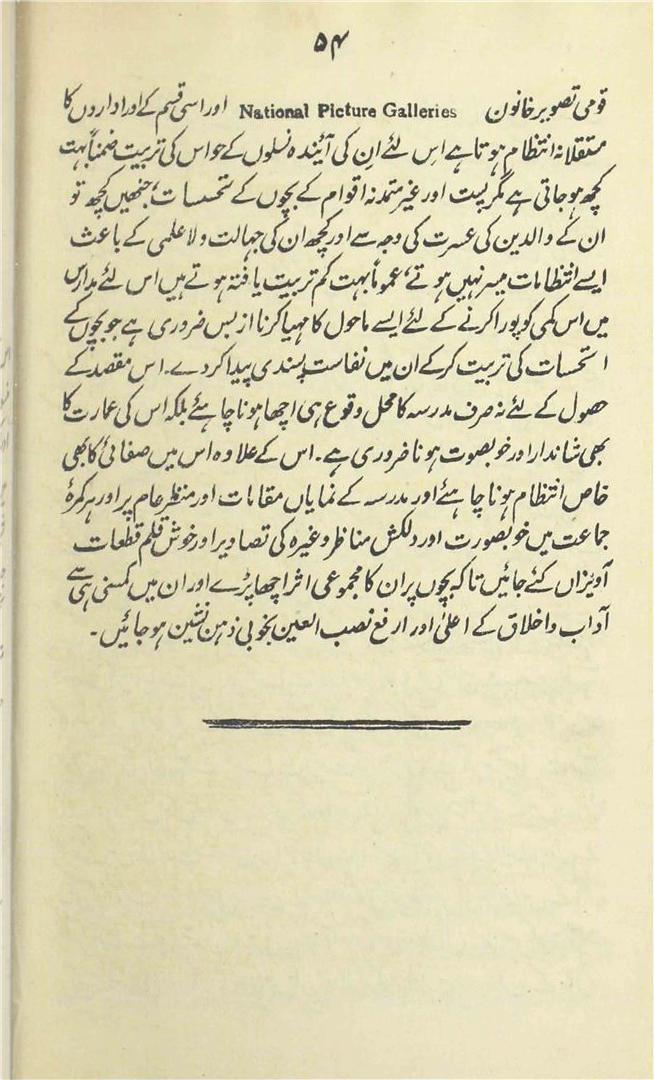 ۵۴
قومی تصویر خانون National Picture Galleries اور اسی قسم کے اور اداروں کا
مستقلانہ انتظام ہوتا ہے اس لئے ان کی آئیندہ نسلوں کے حواس کی تربیت ضمناً بہت
کچھ ہو جاتی ہے مگر پست اور غیر متمدنہ اقوام کے بچوں کے تحسسات، جنھیں کچھ تو
ان کے والدین کی عسرت کی وجہ سے اور کچھ ان کی جہالت و لا علمی کے باعث
ایسے انتظامات میسر نہیں ہوتے، عموماً بہت کم تربیت یافتہ ہوتے ہیں اس لئے مدارس
میں اس کمی کو پورا کرنے کے لئے ایسے ماحول کا مہیا کرنا از بس ضروری ہے جو بچوں کے
احتسات کی تربیت کر کے ان میں نفاست پسندی پیدا کر دے۔ اس مقصد کے
حصول کے لئے نہ صرف مدرسہ کا محل وقوع ہی اچھا ہونا چاہئے بلکہ اس کی عمارت کا
بھی شاندار اور خوبصوت ہونا ضروری ہے۔ اس کے علاوہ اس میں صفائی کا بھی
خاص انتظام ہونا چاہئے اور مدرسہ کے نمایاں مقامات اور منظر عام پر اور ہر کمرۂ
جماعت میں خوبصورت اور دلکش مناظر وغیرہ کی تصادیر اور خوش قلم قطعات
آویزاں کئے جائیں تاکہ بچوں پر ان کا مجموعی اثر اچھا پڑے اور ان میں کمسنی ہی سے
آداب و اخلاق کے اعلیٰ اور ارفع نصب العین بخوبی ذہن نشین ہو جائیں۔